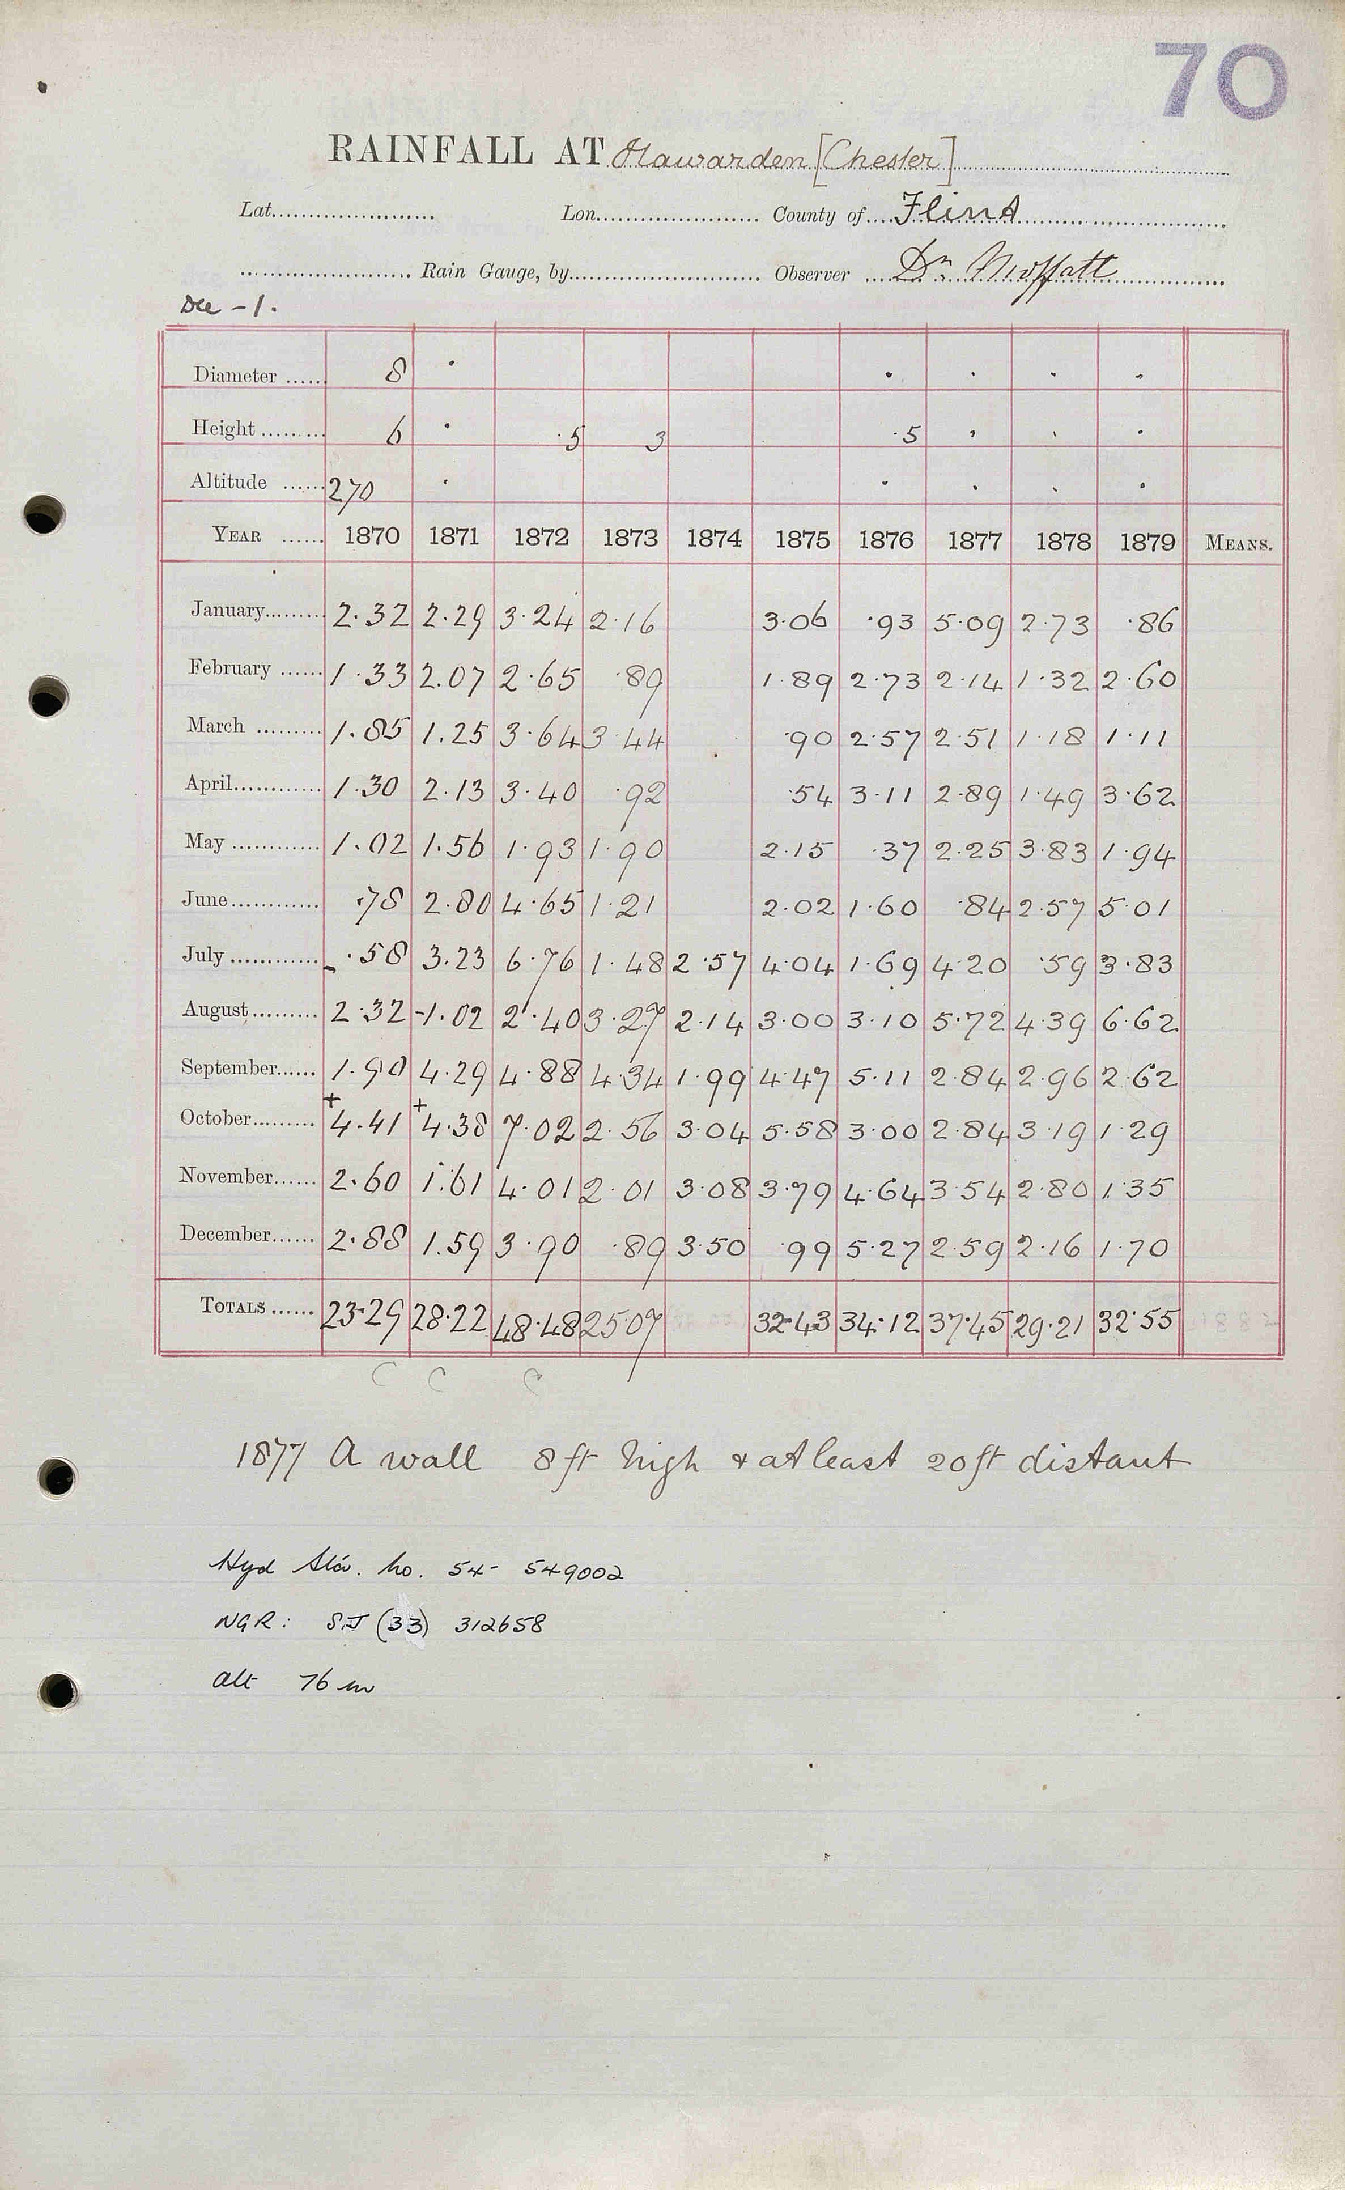 70
RAINFALL AT Hawarden [Chester]
Lat. Lon. County of Flint
Rain Gauge, by Observer Dr Moffatt
Dec - 1.
Diameter 8 · · · · ·
Height 6 · ·5 3 ·5 · · ·
Altitude 270 · · · · ·
YEAR 1870 1871 1872 1873 1874 1875 1876 1877 1878 1879 MEANS.
January 2.32 2.29 3.24 2.16 3.06 .93 5.09 2.73 .86
February 1.33 2.07 2.65 .89 1.89 2.73 2.14 1.32 2.60
March 1.85 1.25 3.64 3.44 .90 2.57 2.51 1.18 1.11
April 1.30 2.13 3.40 .92 .54 3.11 2.89 1.49 3.62
May 1.02 1.56 1.93 1.90 2.15 .37 2.25 3.83 1.94
June .78 2.80 4.65 1.21 2.02 1.60 .84 2.57 5.01
July - .58 3.23 6.76 1.48 2.57 4.04 1.69 4.20 .59 3.83
August 2.32 -1.02 2.40 3.27 2.14 3.00 3.10 5.72 4.39 6.62
September 1.90 4.29 4.88 4.34 1.99 4.47 5.11 2.84 2.96 2.62
October +4.41 +4.38 7.02 2.56 3.04 5.58 3.00 2.84 3.19 1.29
November 2.60 1.61 4.01 2.01 3.08 3.79 4.64 3.54 2.80 1.35
December 2.88 1.59 3.90 .89 3.50 .99 5.27 2.59 2.16 1.70
TOTALS 23.29 28.22 48.48 25.07 32.43 34.12 37.45 29.21 32.55
C C C
1877 A wall 8ft high & at least 20ft distant
Hyd Stn. no. 54- 549002
NGR: SJ (33) 312658
alt 76 m